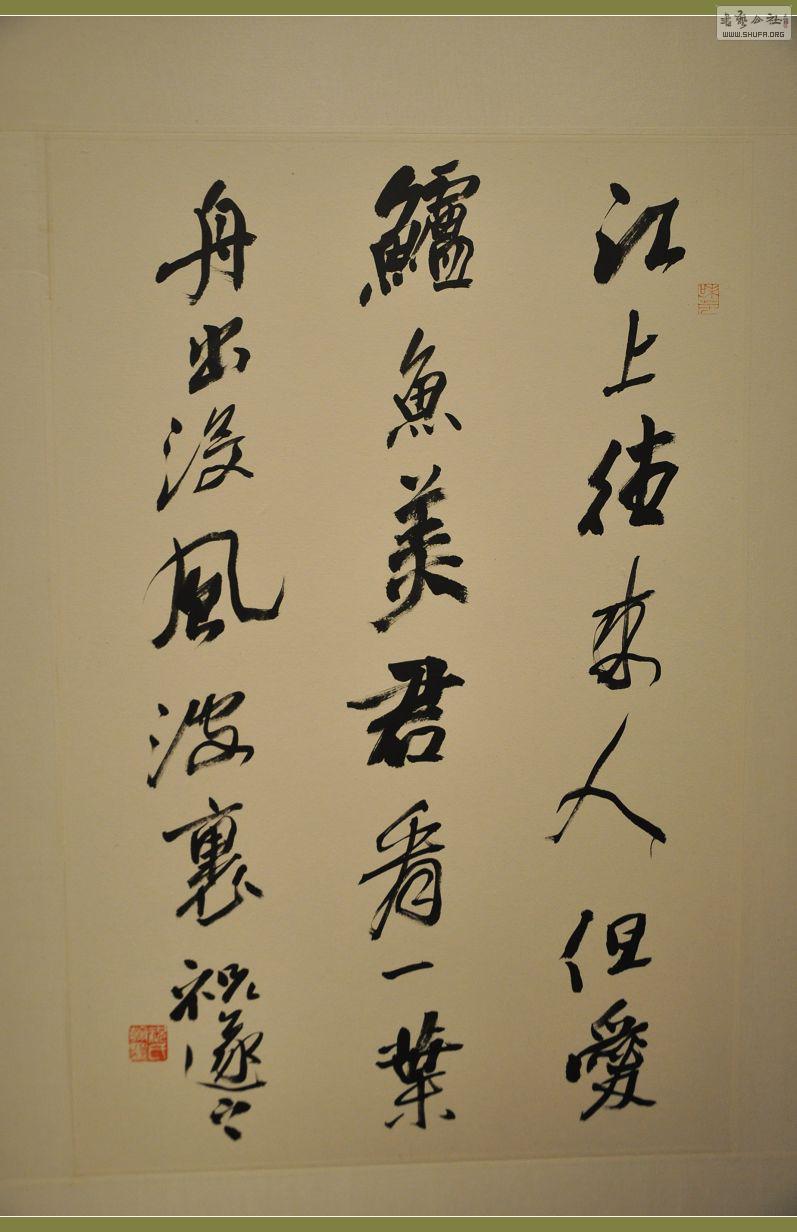 江上往来人但愛
鱸魚美君看一葉
舟出没風波裏祝遂之
WWW.SHUFA.ORG